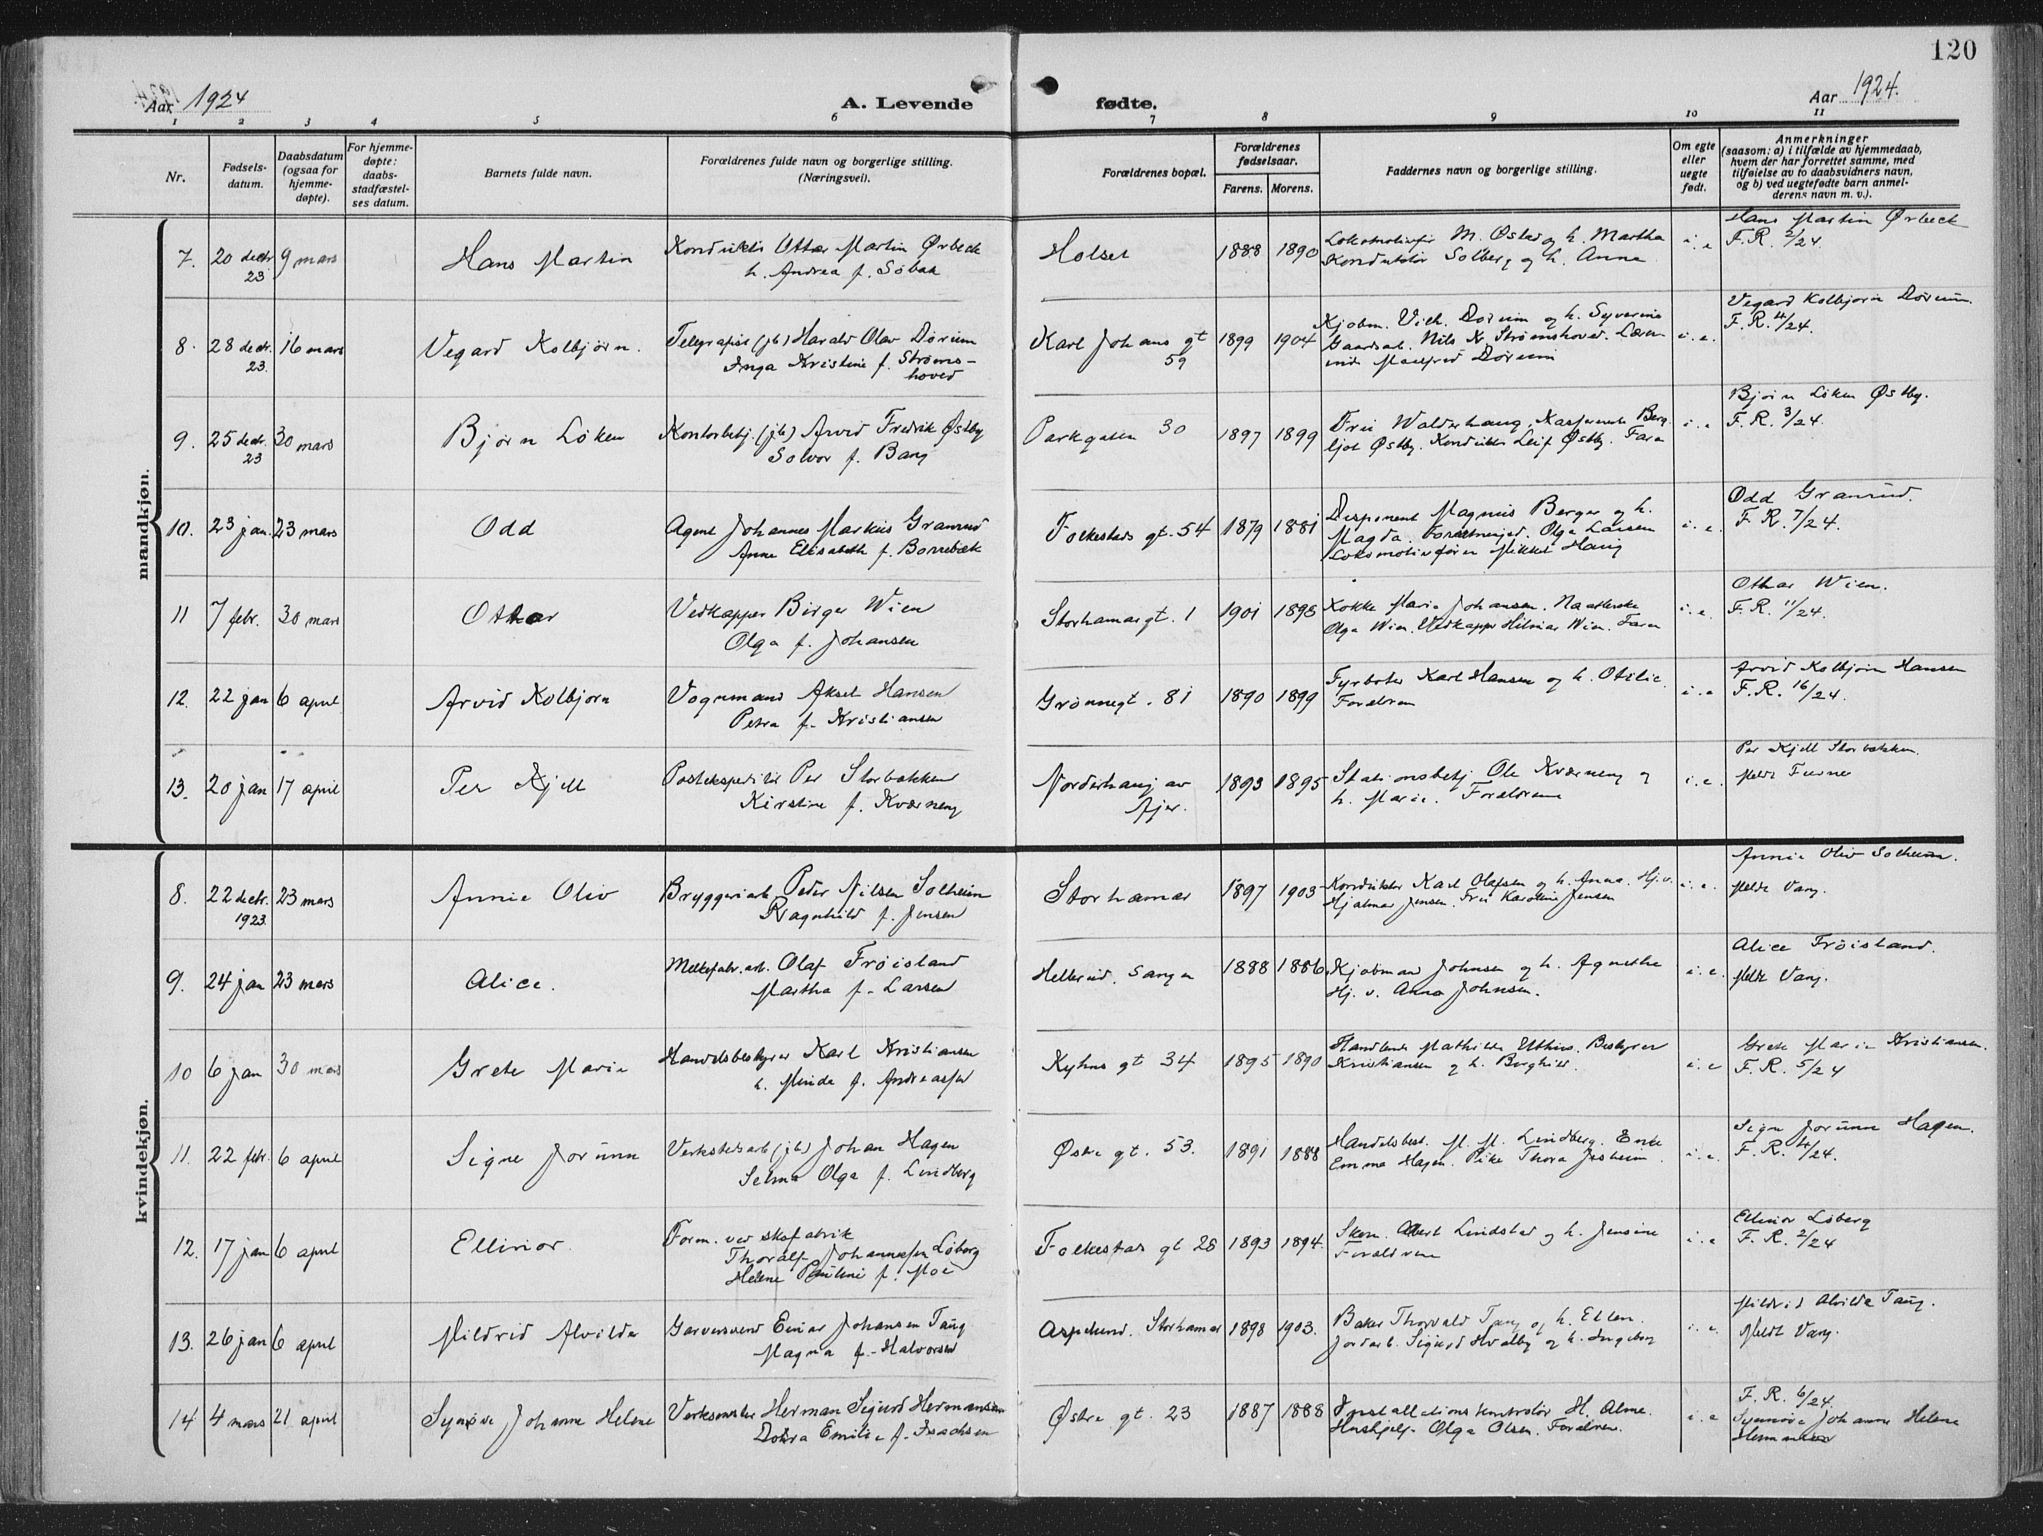 120
Aar 1924
A. Levende fødte.
Aar 1924.
1 2 3 4 5 6 7 8 9 10 11
Nr.
Fødsels-
datum.
Daabsdatum
(ogsaa for
hjemme-
døpte).
For hjemme-
døpte:
daabs-
stadfæstel-
ses datum.
Barnets fulde navn.
Forældrenes fulde navn og borgerlige stilling.
(Næringsvei).
Forældrenes bopæl.
Forældrenes
fødselsaar.
Farens. Morens.
Faddernes navn og borgerlige stilling.
Om egte
eller
uegte
født.
Anmerkninger
(saasom: a) i tilfælde av hjemmedaab,
hvem der har forrettet samme, med
tilføielse av to daabsvidners navn,
og b) ved uegtefødte barn anmel-
derens navn m. v.).
mandkjøn.
7. 20 decbr 23 9 mars Hans Martin
Konduktør Ottar Martin Ørbeck
h. Andrea f. Søbak
Holset 1888 1890
M. Østad og h. Martha
Konduktør Solberg og h. Anna
i. e
Hans Martin Ørbeck
F. R. 2/24.
8 28 decbr. 23. 16 mars Vegard Kolbjørn.
Telegrafist (jb) Harald Olav Dørum
Inga Kristine f. Strøms-
hoved
Karl Johans gt
59
1899 1904
Kjøbm. Dørum og h. Syverine
Nils K. Strømshoved.
Dørum
i. e.
Vegard Kolbjørn Dørum.
F. R. 4/24.
9. 25 decbr. 23 30 mars Bjørn Løken
Kontorbetj. (jb) Arvid Fredrik Østby
Solvor f. Bang
Parkgaten 30 1897 1899
Østby. Konduktør Leif Østby. Faren
i. e
Bjørn Løken Østby.
F. R. 3/24.
10. 23 jan. 23 mars Odd
Agent Johannes Markus Granrud
Anne Elisabeth f. Borrebæk
Folkestads gt. 54 1879 1881
Disponent Magnus Berger og h.
Magda. Olga Larsen
Lokomotivfører Mikkel Haug
i. e.
Odd Granrud.
F. R. 7/24.
11 7 febr. 30 mars Ottar
Vedkapper Birger Wien
Olga f. Johansen
Storhamargt. 1 1901 1898
Kokke Marie Johansen.
Olga Wien. Vedkapper Hilmar Wien. Faren
i. e.
Othar Wien.
F. R. 11/24.
12. 22 jan 6 april Arvid Kolbjørn
Vognmand Aksel Hansen
Petra f. Kristiansen
Grønnegt. 81 1890 1899
Fyrbøter Karl Hansen og h. Otilie.
Foreldren
i. e
Arvid Kolbjørn Hansen
F. R. 16/24.
13. 20 jan 17 april Per Kjell
Postekspeditør Per Storbakken
Kirstine f. Kværneng
Norderhaug av
1893 1895
Stationsbetj Ole Kværneng og
h. Marie. Foreldrene
i. e.
Per Kjell Storbakken.
Meldt Furnes
kvindekjøn.
8. 22 decbr. 1923. 23 mars Annie Oliv
Bryggeriarb. Peder Nilsen Solheim
Ragnhild f. Jensen
Storhamar 1897 1903
Konduktør Karl Olafsen og h. Anna. Hj.v.
Hjalmar Jensen. Fru Karoline Jensen
i. e.
Annie Oliv Solheim.
Meldt Vang.
9. 24 jan 23 mars Alice.
Melkefabr. arb. Olaf Frøisland
Martha f. Larsen
Hellerud, Vangen 1888 1886
Kjøbmand Johnsen og h. Agnethe
Hj. v. Anna Johnsen.
i. e
Alice Frøisland.
Meldt Vang.
10 6 jan 30 mars Grete Marie
Handelsbestyrer Karl Kristiansen
h. Minda f. Andreassen
Kyhns gt 34 1895 1890
Mathilde Uthus. Bestyrer
Kristiansen og h. Borghild.
i. e
Grete Marie Kristiansen.
F. R. 5/24
11. 22 febr. 6 april Signe Jorunn
Verkstedsarb (jb) Johan Hagen
Selma Olga f. Lindberg
Østre gt. 53. 1891 1888
Handelsbest. M. M. Lindberg. Enke
Emma Hagen. Pike Thora Jesheim
i. e.
Signe Jorunn Hagen.
F. R. 4/24.
12. 17 jan 6 april Ellinor.
Form. ved skofabrik
Thoralf Johannessen Løberg
Helene Pauline f. Moe
Folkestads gt 28 1893 1894.
Lindstad og h. Jensine
Foreldrene
i. e
Ellinor Løberg
F. R. 2/24
13. 26 jan 6 april Mildrid Alvilde
Garversvend Einar Johansen Taug
Magna f. Halvorsen
Aspelund. Storhamar 1898 1903.
Baker Thorvald Taug og h. Ellen.
Jordarb. Sigurd Hvalby og h. Ingeborg
i. e.
Mildrid Alvilde Taug.
Meldt Vang.
14 4 mars 21 april Synnøve Johanne Helene
Verksmester Herman Sigurd Hermansen
Dobra Emilie f. Isachsen
Østre gt. 23 1887 1888
Installationskontrolør H. Alme.
Hushjelp Olga Olsen. Foreldrene.
i. e
F. R. 6/24.
Synnøve Johanne Helene
Hermansen